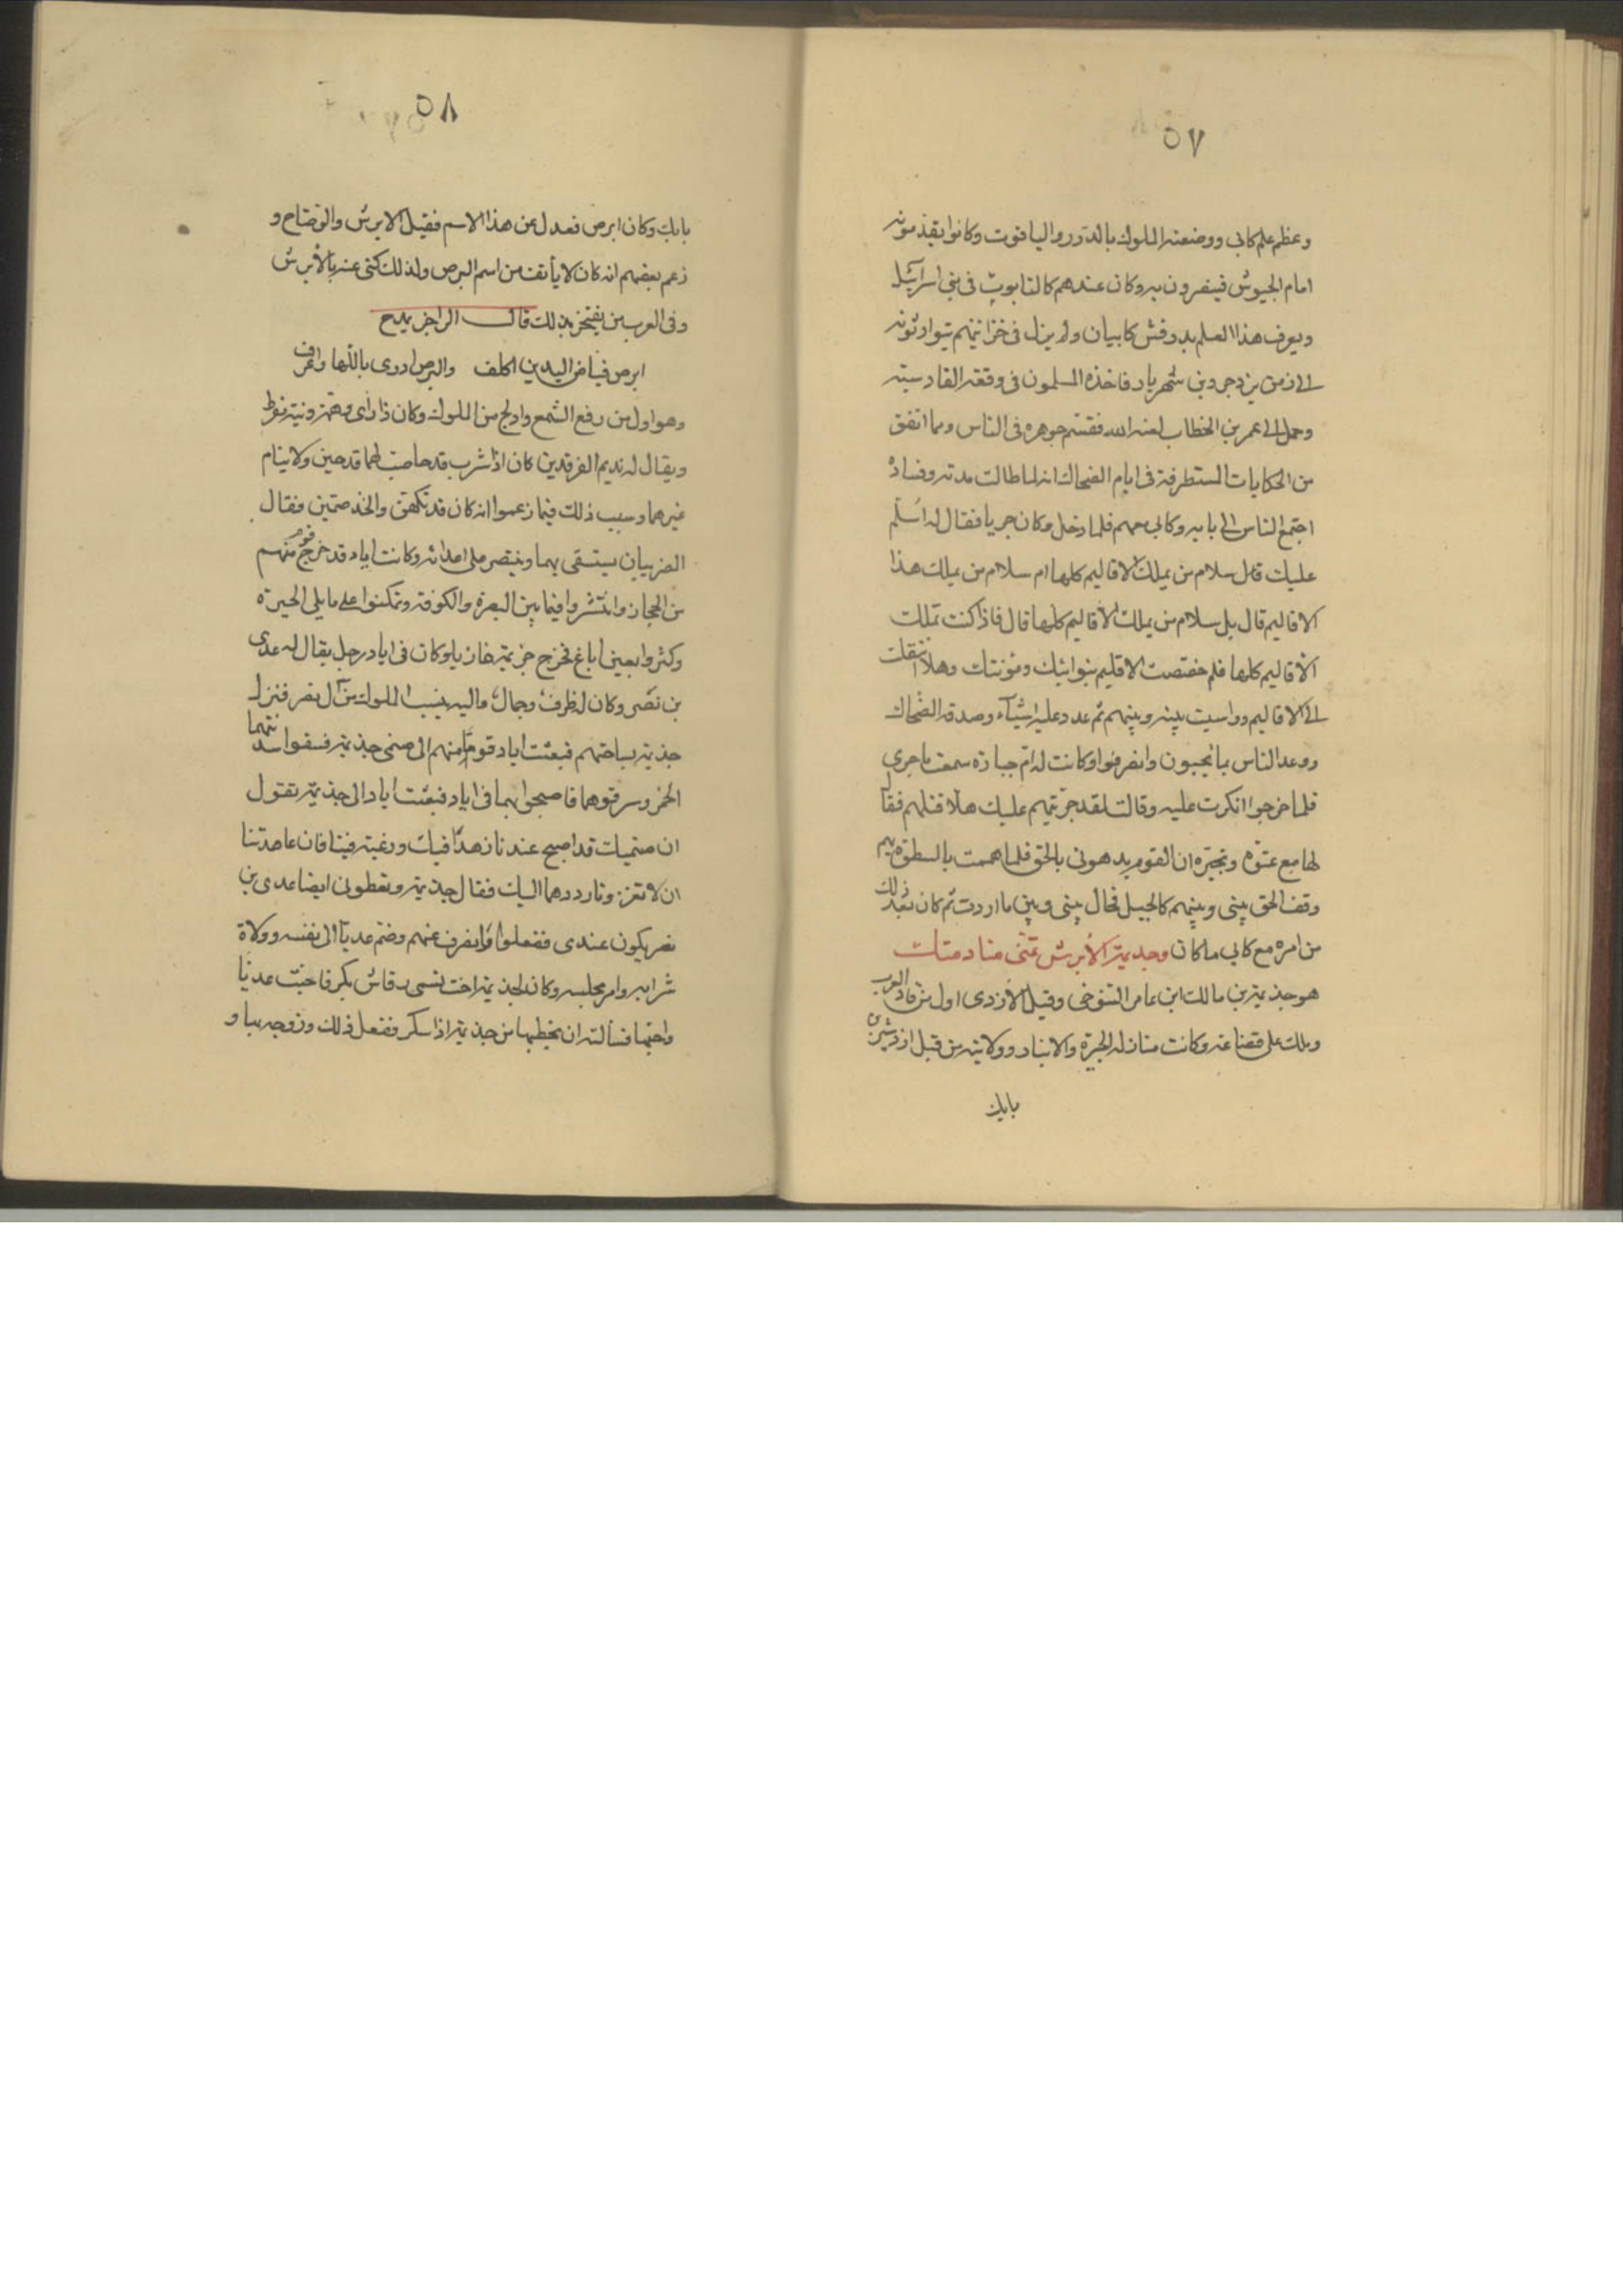 ٥٧
وعظم علم كابى ووضعته الملوك بالدرر واليا قوت وكانوا يقدمونه
امام الجيوش فينصرون به وكان عندهم كالتابوت فى بنى اسرآئيل
ويعرف هذا العلم بدرفش كابيان ولم يزل فى خزائنهم يتوارثونه
الى زمن يزدجرد بن شهريار فاخذه المسلمون فى وقعة القادسية
وحمل الى عمر بن الخطاب لعنه الله فقسم جوهره فى الناس ومما اتفق
من الحكايات المستطرفة فى ايام الضحاك انه لما طالت مدته وفساده
اجتمع الناس الى بابه وكابى معهم فلما دخل وكان جريا فقال له اسلم
عليك قال سلام من يملك الاقاليم كلها ام سلام من يملك هذا
الاقاليم قال بل سلام من يملك الاقاليم كلها قال فاذا كنت تملك
الاقاليم كلها فلم خصصت الاقليم بنوائبك ومؤنتك وهلا انتقلت
الى الاقاليم وواسيت بينه وبينهم ثم عدد عليه اشيآء وصدقه الضحاك
ووعد الناس بما يحبون وانصرفوا وكانت له ام جبارة سمعت ما جرى
فلما خرجوا انكرت عليه وقالت لقد جرئتهم عليك هلا قتلتهم فقال
لها مع عتوه وتجبره ان القوم بدهونى بالحق فلما هممت بالسطوة بهم
وقف الحق بينى وبينهم كالجبل فحال بينى وبين ما اردت ثم كان بعد ذلك
من امره مع كابى ما كان وجذيمة الأبرش تمنى منادمتك
هو جذيمة بن مالك ابن عامر التنوخى وقيل الأزدى اول من قاد العرب
وملك على قضاعة وكانت منازله الحيرة والانبار وولايته من قبل ازدشير بن
بابك
٥٨
بابك وكان ابرص فعدل عن هذا الاسم فقيل الابرش والوضاح و
زعم بعضهم انه كان لا يأنف من اسم البرص ولذلك كنى عنه بالأبرش
وفى العرب من يفتخر بذلك قال الراجز يمدح
ابرص فياض اليدين اكلف والبرص ادرى باللها واعرف
وهو اول من رفع الشمع وادلج من الملوك وكان ذا رأى
ويقال له نديم الفرقدين كان اذا شرب قدحا صب لهما قدحين ولا ينام
غيرهما وسبب ذلك فيما زعموا انه كان قد تكهن واتخذ صنمين وفقال
الضربيان يستسقى بهما وينتصر على اعدائه وكانت اياد قد خرج قوم منهم
من الحجاز وانتشروا فيما بين البصرة والكوفة وتمكنوا على ما يلى الحيرة
وكثروا بعين اباغ فخرج جزيمة وكان فى اياد رجل يقال له عدى
بن نصر وكان له ظرف وجمال واليه ينسب الملوك من آل نصر فنزل
جذيمة بساحتهم فبعثت اياد قوما منهم الى صنمى جذيمة فسقوا سدنتهما
الخمر وسرقوهما فاصبحوا بهما فى اياد فبعثت اياد الى جذيمة تقول
ان صنميك قد اصبح عندنا زهدا فيك ورغبة فينا فان عاهدتنا
ان لا تغزونا رددهما اليك فقال جذيمة وتعطونى ايضا عدى بن
نصر يكون عندى ففعلوا وانصرف عنهم وضم عديا الى نفسه وولاة
شرابه وامر مجلسه وكان لجذيمة اخت تسمى رقاش بكر فاحبت عديا
واحبها فسألته ان يخطبها من جذيمة اذا سكر ففعل ذلك وزوجه بها و